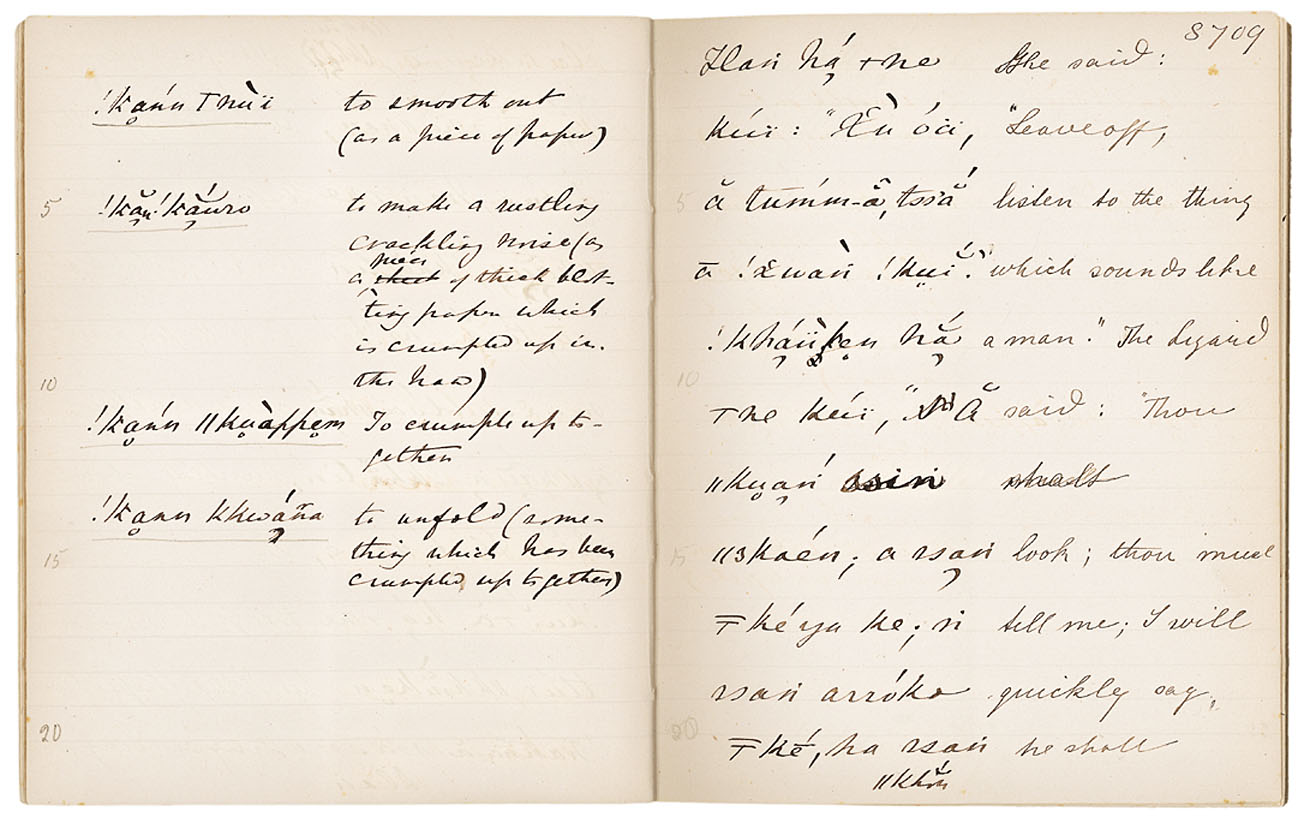 !kann Tnùï to smooth out
(as a piece of paper)
5 !kăn!kăuro to make a rustling
crackling noise (as
piece
a sheet of thick blot-
ting paper which
is crumpled up in
10 the hand)
!kánn ||kuàppem To crumple up to-
gether
!kann kkwáña to unfold (some-
15 thing which has been
crumpled up together)
20
8709
Han há ꞊ne She said:
kúï: "Òú óä, "Leave off,
5 ă túmm-ā, tsă listen to the thing
ā !χwàṅ !kuï." which sounds like
!kháüken hă a man." The lizard
10 ꞊ne kúï, "Ă said: "Thou
||kuaṅ ssin shalt
15 ||3kaén; a ssaṅ look; thou must
Ŧkéya ke; ṅ tell me; I will
ssaṅ arróko quickly say,
20 Ŧké, ha ssaṅ he shall
||khóä